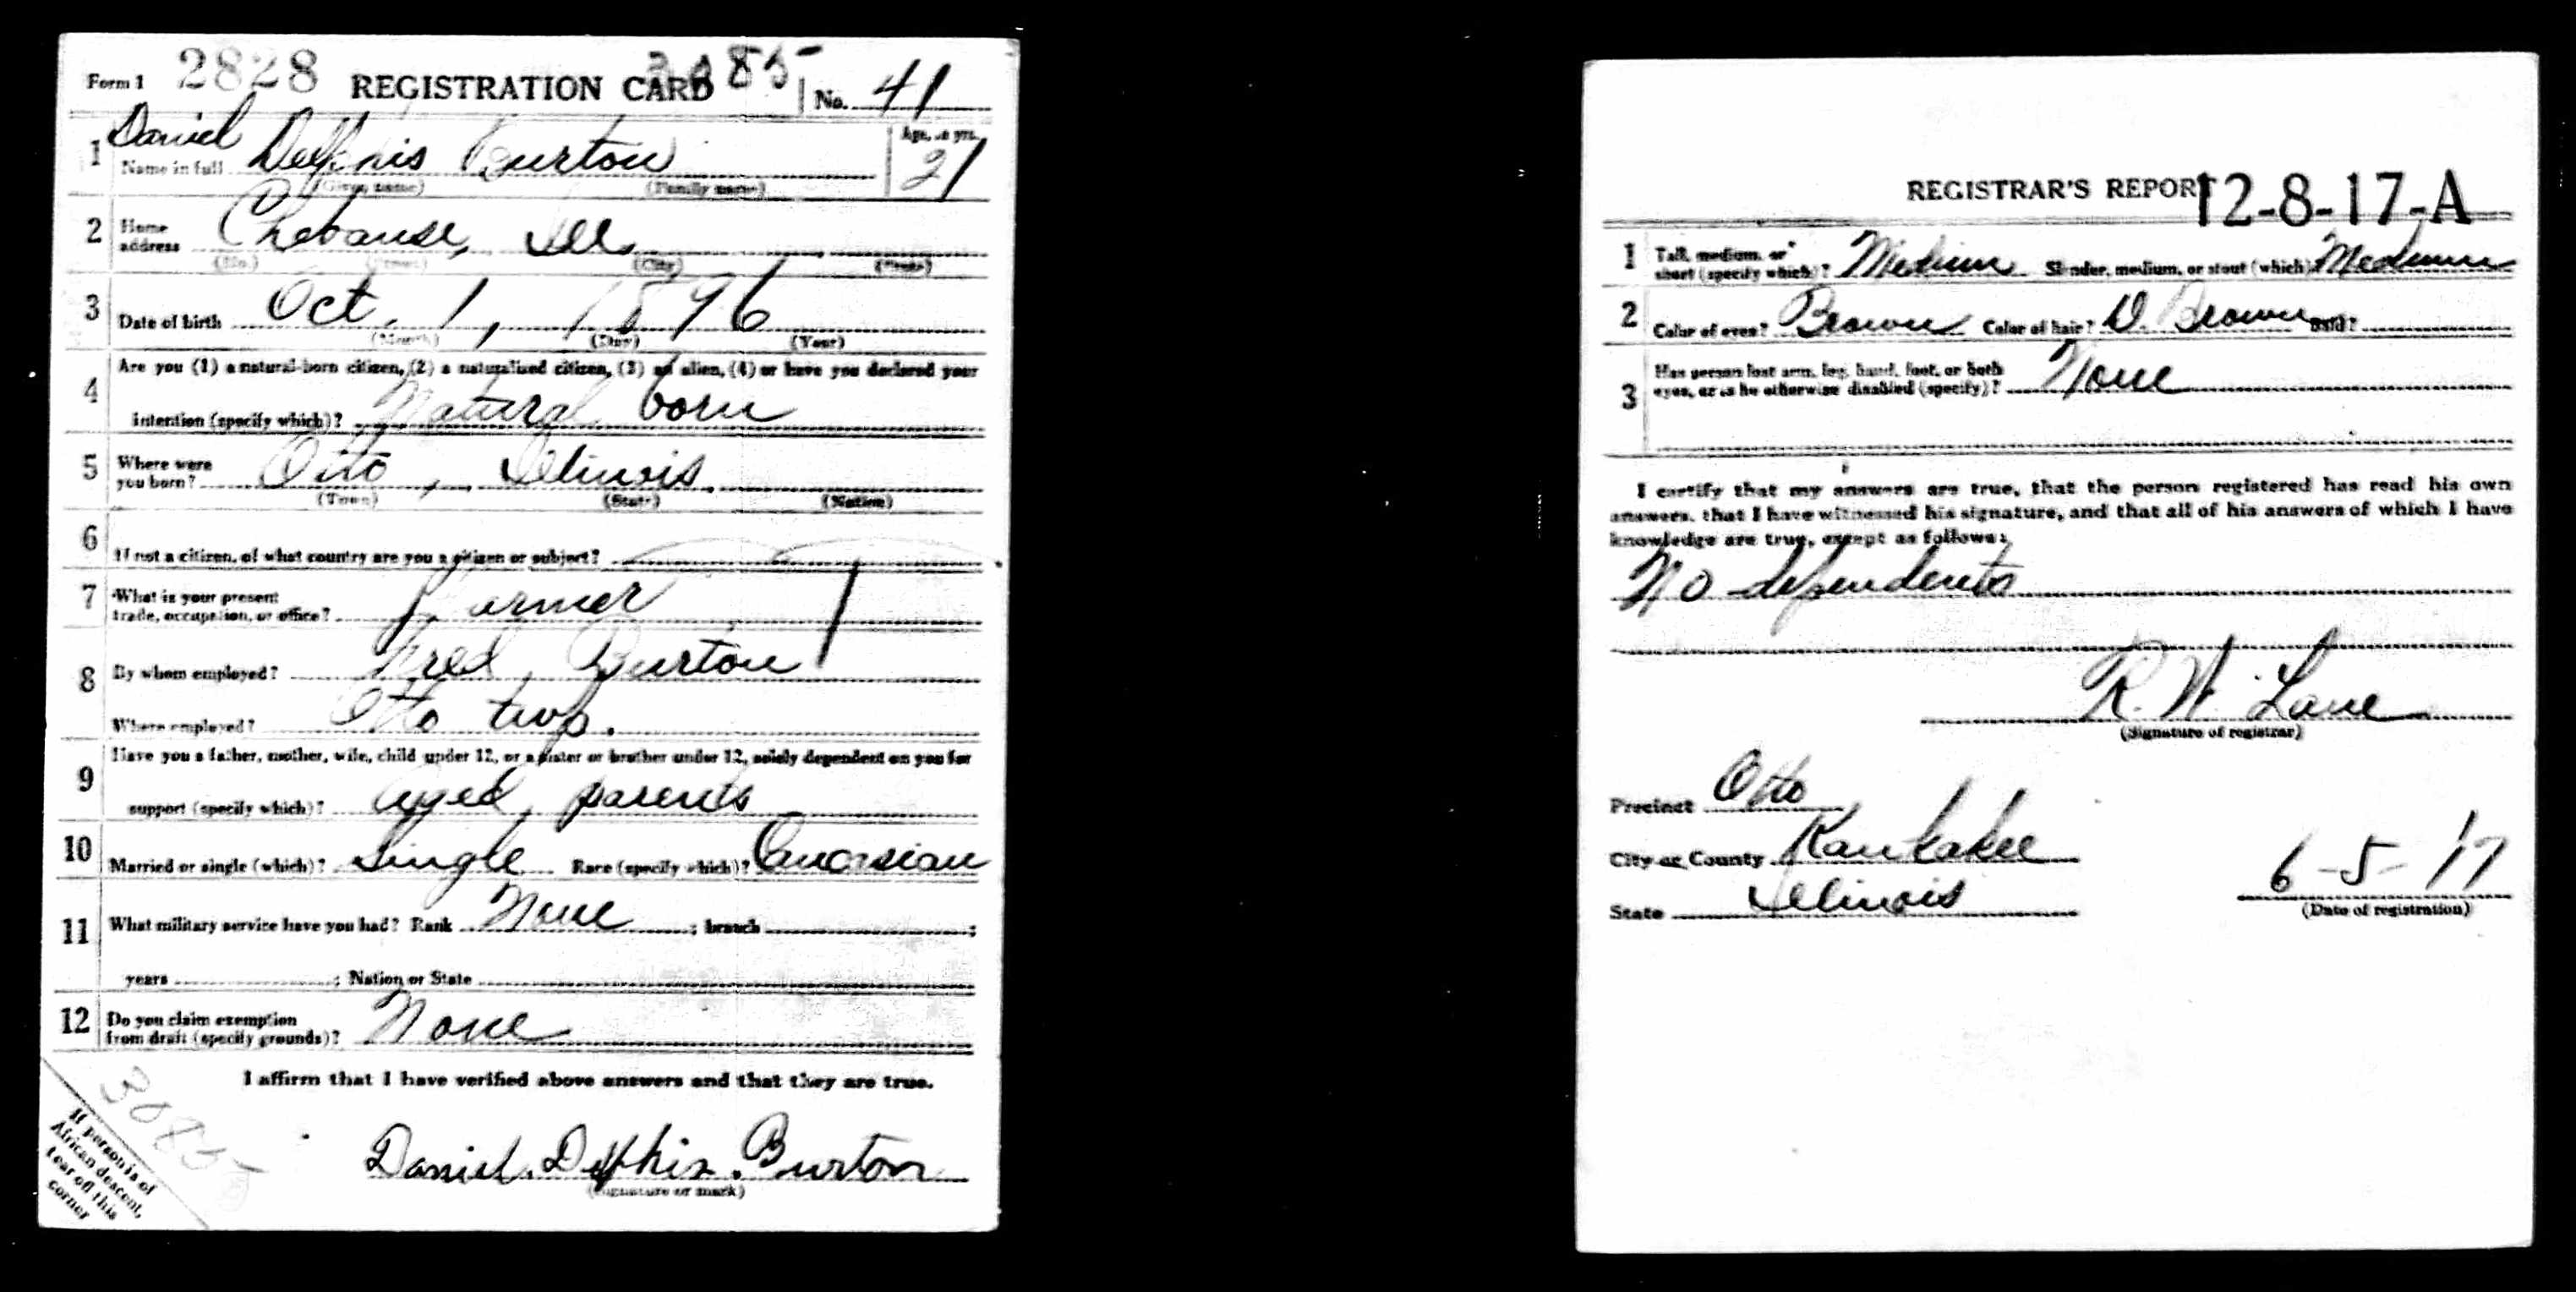 Form 1 2828 REGISTRATION CARD 3085 No. 41
1 Name in full Daniel Delphis Burton Age, in yrs. 21
(Given name) (Family name)
2 Home address Chebanse, Ill.
(No.) (Street) (City) (State)
3 Date of birth Oct. 1, 1896
(Month) (Day) (Year)
4 Are you (1) a natural-born citizen, (2) a naturalized citizen, (3) an alien, (4) or have you declared your
intention (specify which)? Natural born
5 Where were you born? Otto, Illinois
(Town) (State) (Nation)
6 If not a citizen, of what country are you a citizen or subject?
7 What is your present trade, occupation, or office? Farmer
8 By whom employed? Fred Burton
Where employed? Otto twp.
9 Have you a father, mother, wife, child under 12, or a sister or brother under 12, solely dependent on you for
support (specify which)? aged parents
10 Married or single (which)? Single Race (specify which)? Caucasian
11 What military service have you had? Rank None ; branch ;
years ; Nation or State
12 Do you claim exemption from draft (specify grounds)? None
I affirm that I have verified above answers and that they are true.
Daniel Delphis Burton
(Signature or mark)
3085
If person is of
African descent,
tear off this
corner
REGISTRAR'S REPORT 12-8-17-A
1 Tall, medium, or short (specify which)? Medium Slender, medium, or stout (which)? Medium
2 Color of eyes? Brown Color of hair? D. Brown Bald?
3 Has person lost arm, leg, hand, foot, or both
eyes, or is he otherwise disabled (specify)? None
I certify that my answers are true, that the person registered has read his own
answers, that I have witnessed his signature, and that all of his answers of which I have
knowledge are true, except as follows:
No dependents
R. W. Lane
(Signature of registrar)
Precinct Otto
City or County Kankakee
State Illinois
6-5-17
(Date of registration)